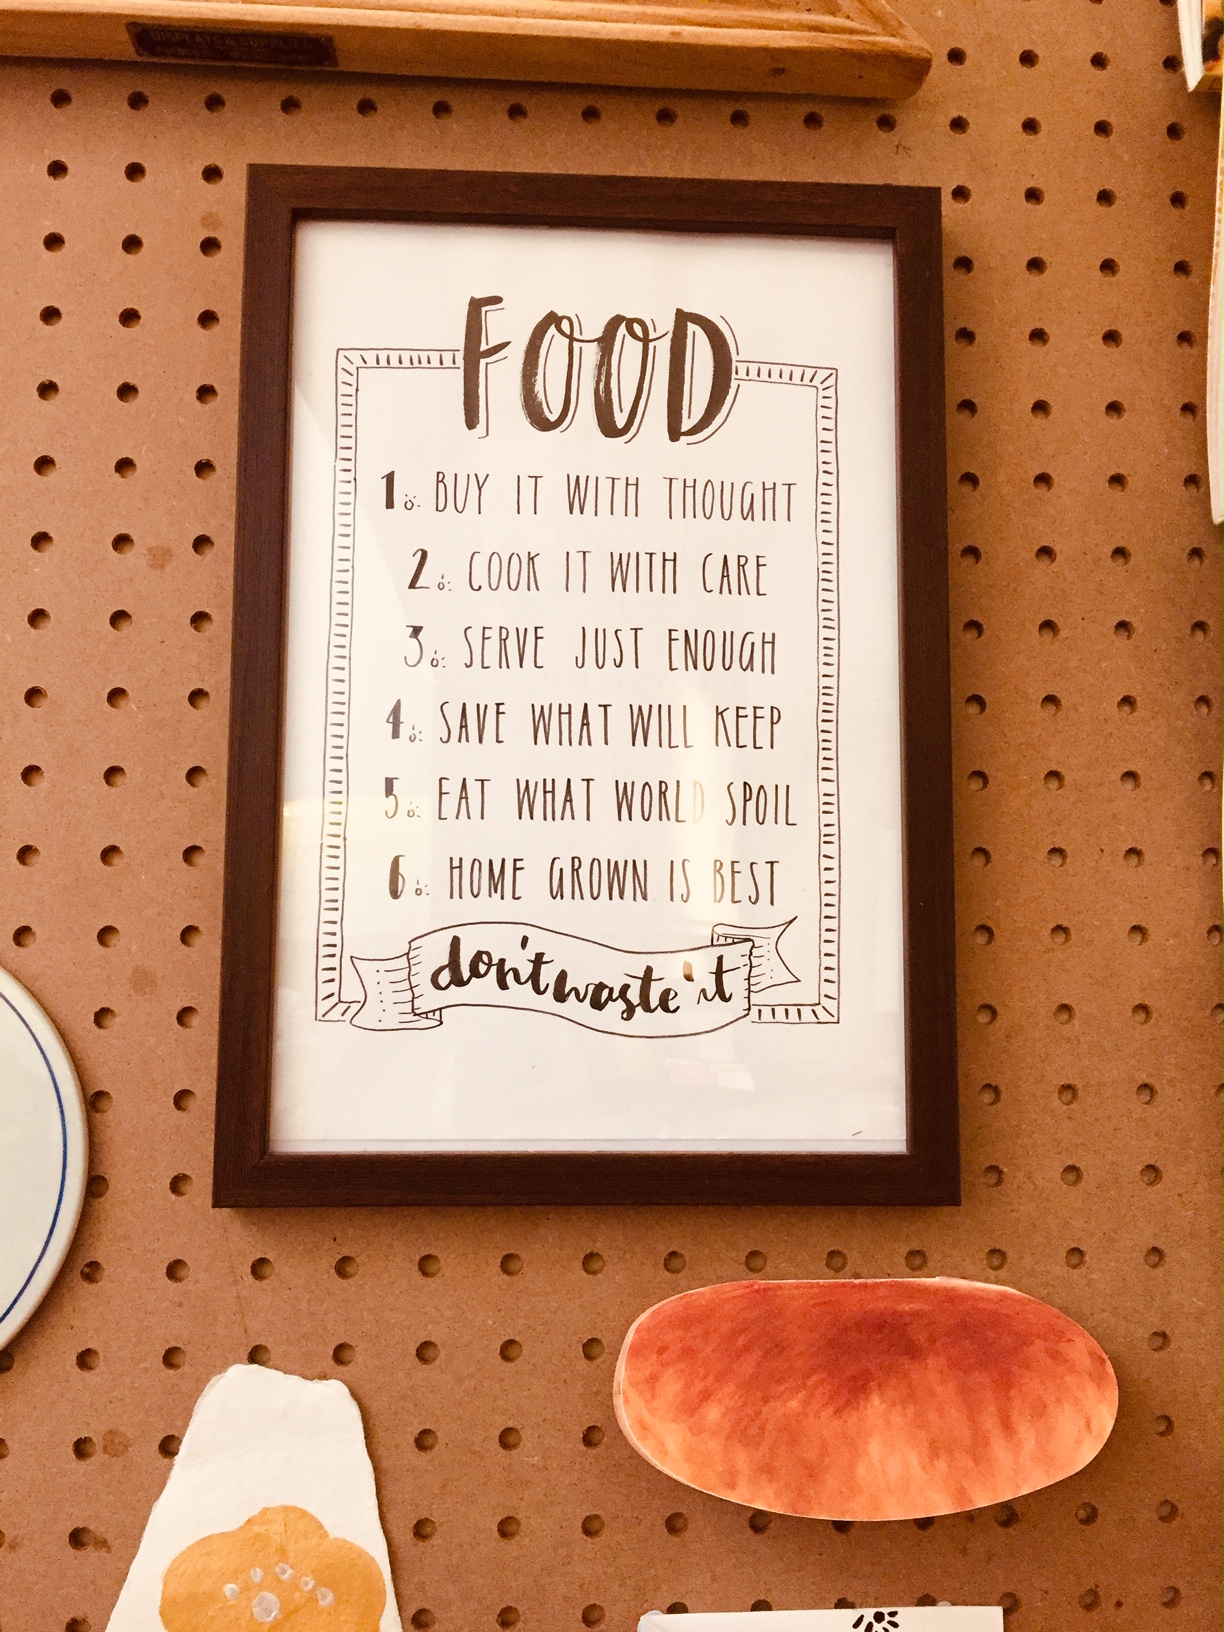 FOOD
1. BUY IT WITH THOUGHT
2. COOK IT WITH CARE
3. SERVE JUST ENOUGH
4. SAVE WHAT WILL KEEP
5. EAT WHAT WORLD SPOIL
6. HOME GROWN IS BEST
don't waste it